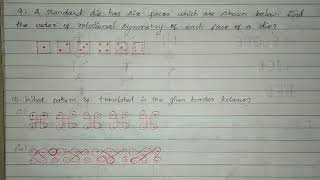 9. A standard die has six faces which are shown below. Find
the order of rotational symmetry of each face of a die?
10. What pattern is translated in the given border kolams?
(i)
(ii)